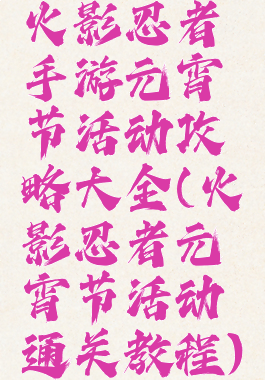 火影忍者
手游元宵
节活动攻
略大全(火
影忍者元
宵节活动
通关教程)